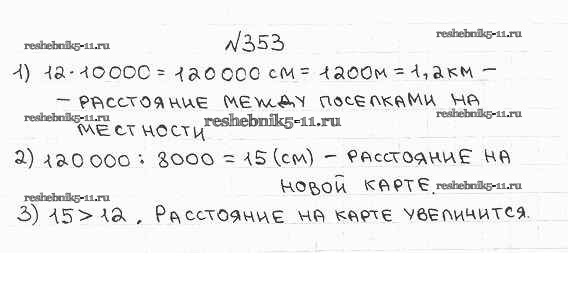 №353
reshebnik5-11.ru
reshebnik5-11.ru
1) 12·10000 = 120000 см = 1200м = 1,2км –
– расстояние между поселками на
reshebnik5-11.ru
reshebnik5-11.ru
reshebnik5-11.ru
местности
2) 120000 : 8000 = 15 (см) – расстояние на
новой карте.
reshebnik5-11.ru
reshebnik5-11.ru
3) 15 > 12. Расстояние на карте увеличится.